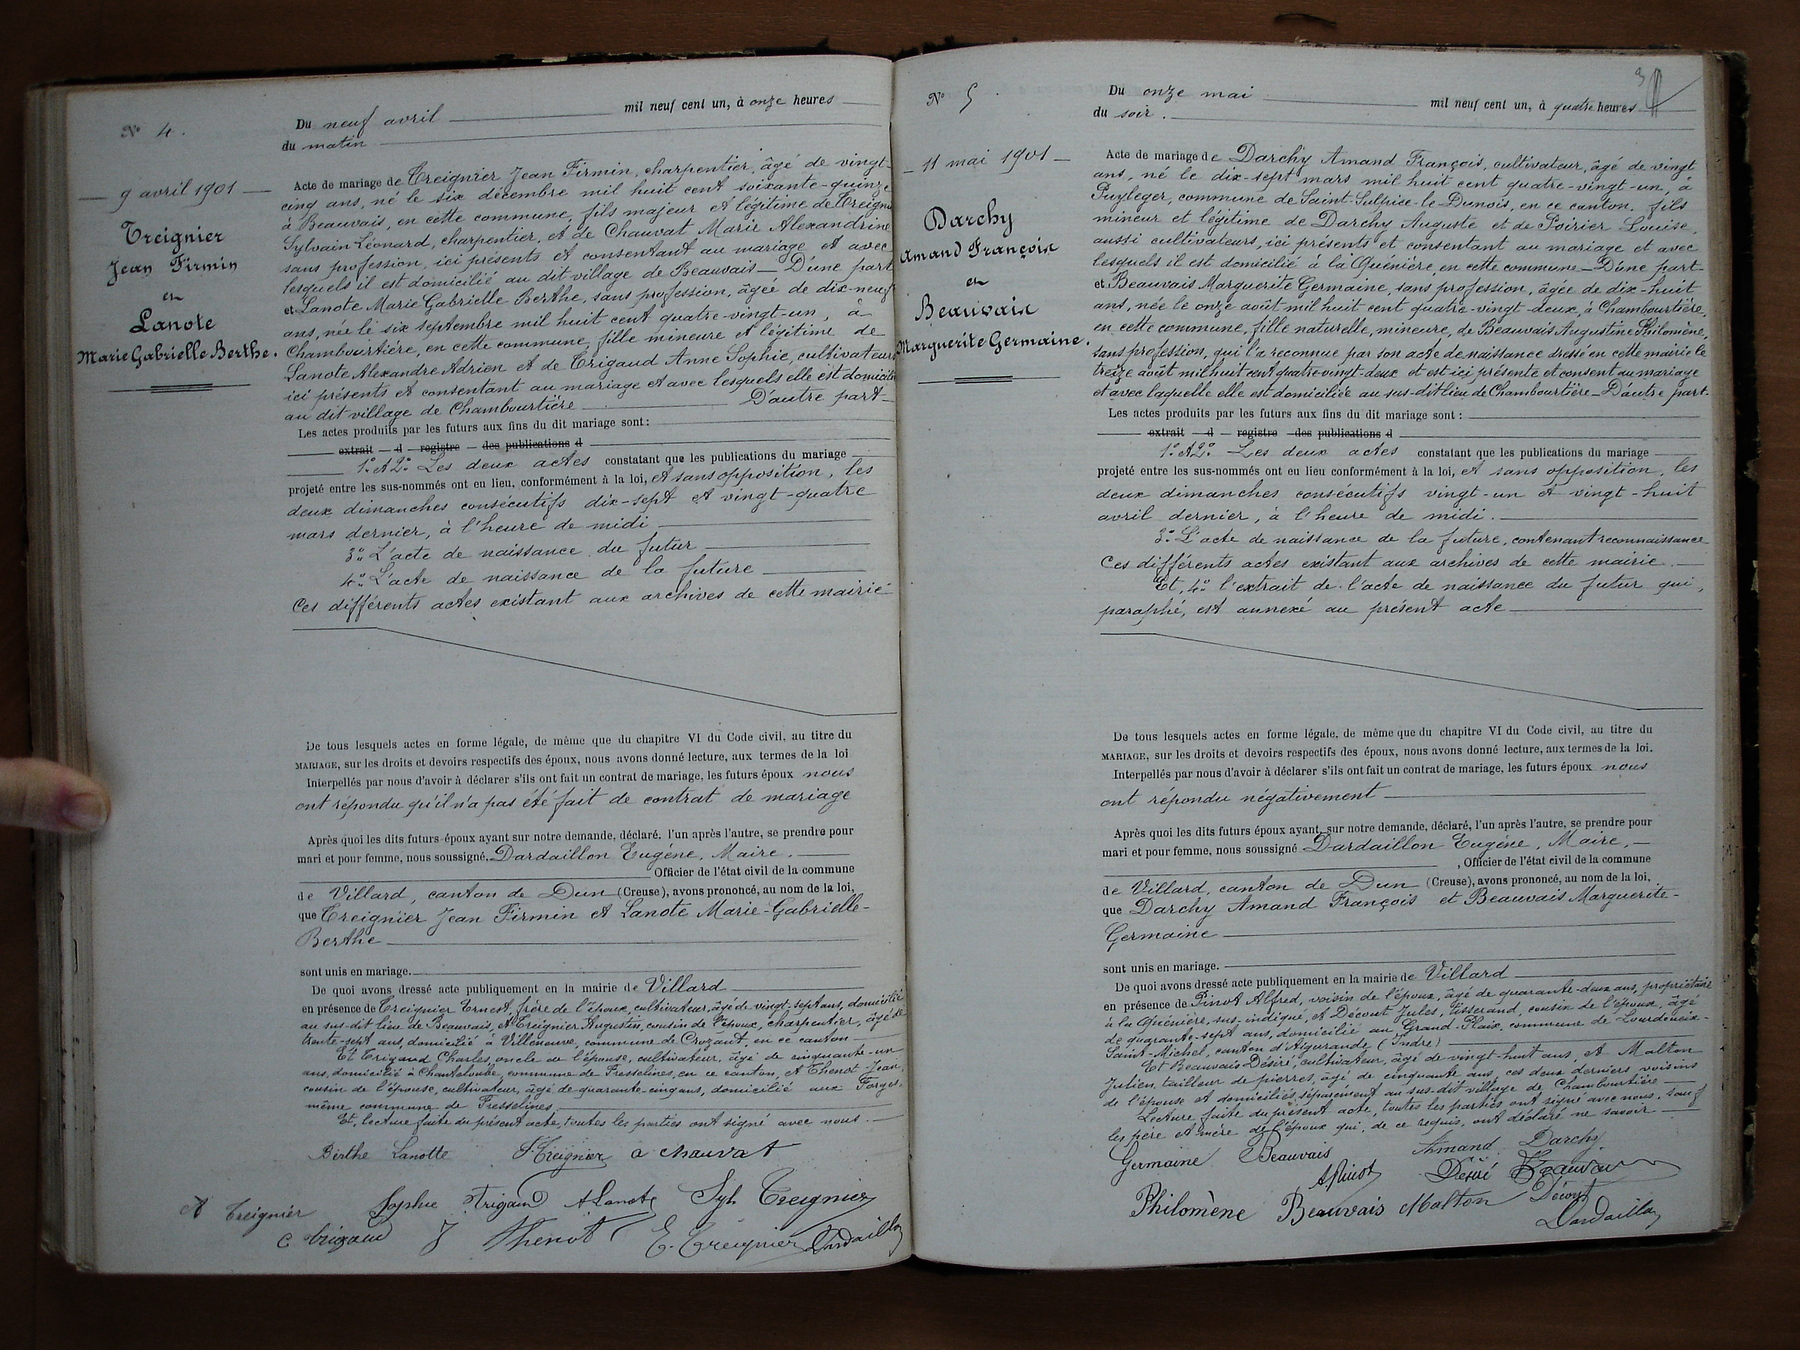 Nº 4.
9 avril 1901
Treignier
Jean Firmin
et
Lanote
Marie Gabrielle Berthe.
Du neuf avril mil neuf cent un, à onze heures
du matin
Acte de mariage de Treignier Jean Firmin, charpentier, âgé de vingt-
cinq ans, né le six décembre mil huit cent soixante-quinze
à Beauvais, en cette commune, fils majeur et légitime de Treigni
Sylvain Léonard, charpentier, et de Chauvat Marie Alexandrine
sans profession, ici présents et consentant au mariage et avec
lesquels il est domicilié au dit village de Beauvais — D'une part
et Lanote Marie Gabrielle Berthe, sans profession, âgée de dix-neuf
ans, née le six septembre mil huit cent quatre-vingt-un, à
Chambourtière, en cette commune, fille mineure et légitime de
Lanote Alexandre Adrien et de Trigaud Anne Sophie, cultivateurs
ici présents et consentant au mariage et avec lesquels elle est domicili
au dit village de Chambourtière D'autre part
Les actes produits par les futurs aux fins du dit mariage sont :
extrait — d — registre — des publications d
1º et 2º Les deux actes constatant que les publications du mariage
projeté entre les sus-nommés ont eu lieu, conformément à la loi, et sans opposition, les
deux dimanches consécutifs dix-sept et vingt-quatre
mars dernier, à l'heure de midi
3º L'acte de naissance du futur
4º L'acte de naissance de la future
Ces différents actes existant aux archives de cette mairie
De tous lesquels actes en forme légale, de même que du chapitre VI du Code civil, au titre du
MARIAGE, sur les droits et devoirs respectifs des époux, nous avons donné lecture, aux termes de la loi
Interpellés par nous d'avoir à déclarer s'ils ont fait un contrat de mariage, les futurs époux nous
ont répondu qu'il n'a pas été fait de contrat de mariage
Après quoi les dits futurs-époux ayant sur notre demande, déclaré, l'un après l'autre, se prendre pour
mari et pour femme, nous soussigné, Dardaillon Eugène, Maire,
Officier de l'état civil de la commune
de Villard, canton de Dun (Creuse), avons prononcé, au nom de la loi,
que Treignier Jean Firmin et Lanote Marie-Gabrielle-
Berthe
sont unis en mariage.
De quoi avons dressé acte publiquement en la mairie de Villard
en présence de Treignier Ernest, frère de l'époux, cultivateur, âgé de vingt-sept ans, domicilié
au sus-dit lieu de Beauvais, et Treignier Augustin, cousin de l'époux, charpentier, âgé de
trente-sept ans, domicilié à Villeneuve, commune de Crozant, en ce canton
Et Trigaud Charles, oncle de l'épouse, cultivateur, âgé de cinquante-un
ans, domicilié à Chanteloube, commune de Fresselines, en ce canton, et Thenot Jean,
cousin de l'épouse, cultivateur, âgé de quarante-cinq ans, domicilié aux Forges,
même commune de Fresselines
Et, lecture faite du présent acte, toutes les parties ont signé avec nous.
Berthe Lanotte Treignier a Chauvat
A Treignier Sophie Trigaud A Lanote Syl. Treignier
C trigaud J Thenot E. Treignier Dardaillon
Nº 5.
11 mai 1901
Darchy
Amand François
et
Beauvais
Marguerite Germaine.
Du onze mai mil neuf cent un, à quatre heures
du soir.
Acte de mariage de Darchy Amand François, cultivateur, âgé de vingt
ans, né le dix-sept mars mil huit cent quatre-vingt-un, à
Puyléger, commune de Saint-Sulpice-le-Dunois, en ce canton, fils
mineur et légitime de Darchy Auguste et de Poirier Louise,
aussi cultivateurs, ici présents et consentant au mariage et avec
lesquels il est domicilié à la Quénière, en cette commune — D'une part
et Beauvais Marguerite Germaine, sans profession, âgée de dix-huit
ans, née le onze août mil huit cent quatre-vingt-deux, à Chambourtière,
en cette commune, fille naturelle, mineure, de Beauvais Augustine Philomène,
sans profession, qui l'a reconnue par son acte de naissance dressé en cette mairie le
treize août mil huit cent quatre-vingt-deux et est ici présente et consent au mariage
et avec laquelle elle est domiciliée au sus-dit lieu de Chambourtière — D'autre part.
Les actes produits par les futurs aux fins du dit mariage sont :
extrait — d — registre — des publications d
1º et 2º Les deux actes constatant que les publications du mariage
projeté entre les sus-nommés ont eu lieu conformément à la loi, et sans opposition, les
deux dimanches consécutifs vingt-un et vingt-huit
avril dernier, à l'heure de midi.
3º L'acte de naissance de la future, contenant reconnaissance
Ces différents actes existant aux archives de cette mairie.
Et, 4º l'extrait de l'acte de naissance du futur qui,
paraphé, est annexé au présent acte
De tous lesquels actes en forme légale, de même que du chapitre VI du Code civil, au titre du
MARIAGE, sur les droits et devoirs respectifs des époux, nous avons donné lecture, aux termes de la loi.
Interpellés par nous d'avoir à déclarer s'ils ont fait un contrat de mariage, les futurs époux nous
ont répondu négativement
Après quoi les dits futurs époux ayant, sur notre demande, déclaré, l'un après l'autre, se prendre pour
mari et pour femme, nous soussigné Dardaillon Eugène, Maire,
, Officier de l'état civil de la commune
de Villard, canton de Dun (Creuse), avons prononcé, au nom de la loi,
que Darchy Amand François et Beauvais Marguerite-
Germaine
sont unis en mariage.
De quoi avons dressé acte publiquement en la mairie de Villard
en présence de Pinot Alfred, voisin de l'époux, âgé de quarante-deux ans, propriétaire
à la Quénière, sus-indiqué, et Décout Jules, tisserand, cousin de l'époux, âgé
de quarante-sept ans, domicilié au Grand-Plaix, commune de Lourdoueix-
Saint-Michel, canton d'Aigurande (Indre)
Et Beauvais Désiré, cultivateur, âgé de vingt-huit ans, et Malton
Julien, tailleur de pierres, âgé de cinquante ans, ces deux derniers voisins
de l'épouse et domiciliés, séparément au sus-dit village de Chambourtière
Lecture faite du présent acte, toutes les parties ont signé avec nous, sauf
les père et mère de l'époux qui, de ce requis, ont déclaré ne savoir
Germaine Beauvais Amand Darchy
A Pinot Désiré Beauvais
Philomène Beauvais Malton Décout
Dardaillon